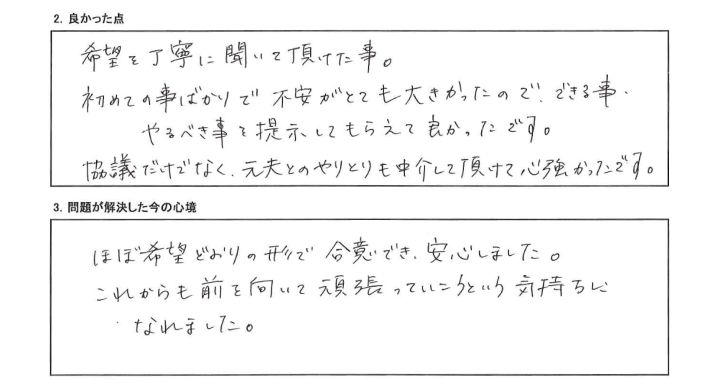 2. 良かった点
希望を丁寧に聞いて頂けた事。
初めての事ばかりで不安がとても大きかったので、できる事・
やるべき事を提示してもらえて良かったです。
協議だけでなく、元夫とのやりとりも中介して頂けて心強かったです。
3. 問題が解決した今の心境
ほぼ希望どおりの形で合意でき、安心しました。
これからも前を向いて頑張っていこうという気持ちに
なれました。